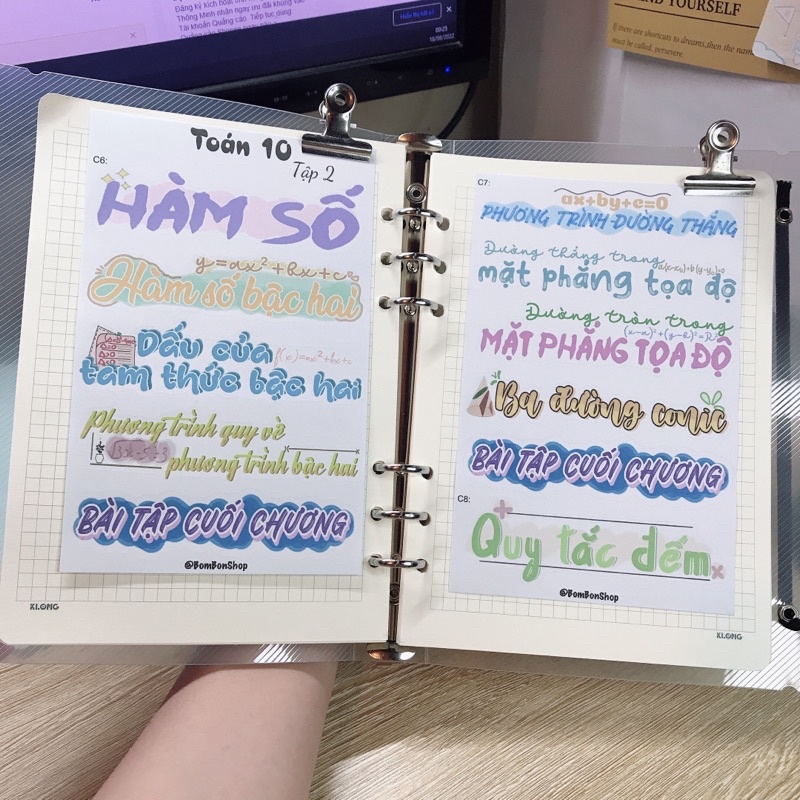 Đăng ký kích hoạt
Thông Minh nhận ngay ưu đãi khủng vào
Tài khoản Quảng cáo. Tiếp tục dùng
00:25
10/08/2022
MIND YOURSELF
If there are shortcuts to dreams, then the name
must be called, persevere.
Toán 10
Tập 2
C6:
HÀM SỐ
y=ax²+bx+c
Hàm số bậc hai
Dấu của f(x)=ax²+bx+c
tam thức bậc hai
Phương trình quy về
phương trình bậc hai
BÀI TẬP CUỐI CHƯƠNG
@BomBonShop
KLONG
C7:
ax+by+c=0
PHƯƠNG TRÌNH ĐƯỜNG THẲNG
Đường thẳng trong
a(x-x₀)+b(y-y₀)=0
mặt phẳng tọa độ
Đường tròn trong
MẶT PHẲNG TỌA ĐỘ
Ba đường conic
BÀI TẬP CUỐI CHƯƠNG
C8:
Quy tắc đếm
@BomBonShop
KLONG